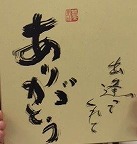 出逢って
くれて
ありがとう